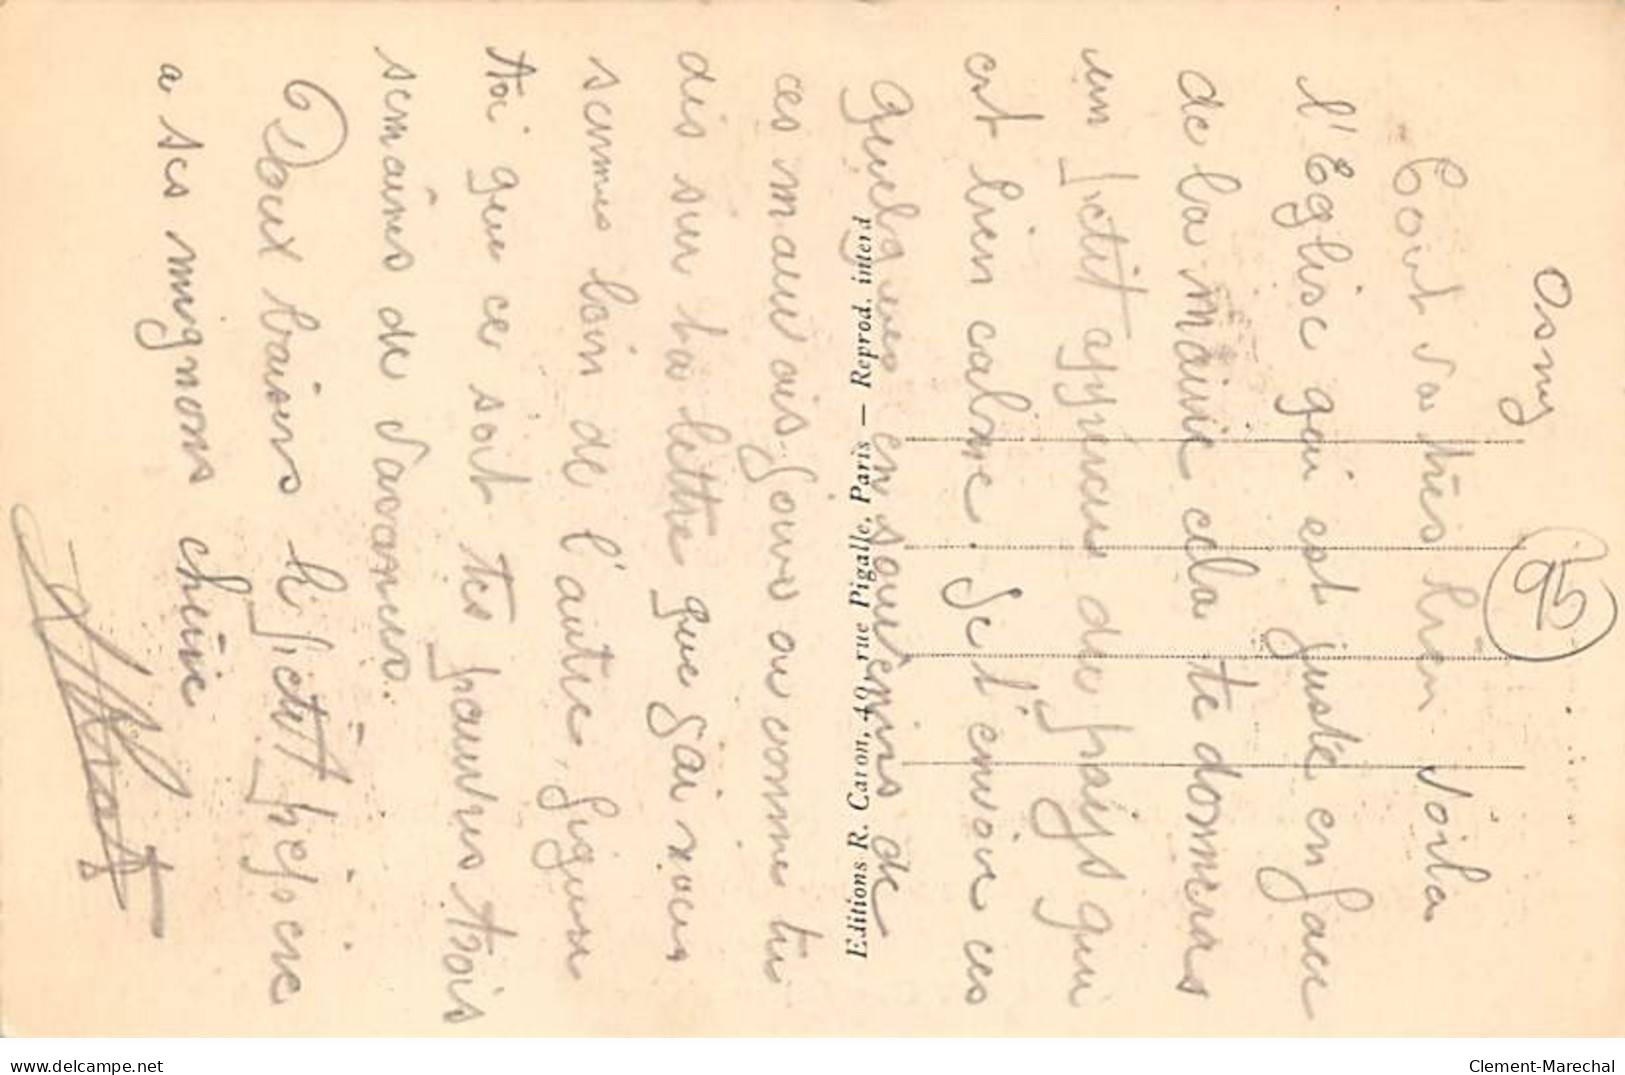 Osny
95
Tout va très bien Voila
l'Eglise qui est juste en face
de la mairie cela te donneras
un petit apercu du pays qui
est bien calme. Je t'envoie ces
quelques en souvenirs de
ces mauvais jours ou comme tu
dis sur ta lettre que j'ai nous
sommes loin de l'autre, figure
toi que ce soit tes pauvres trois
semaines de vacances.
Doux baisers ti petit
a ses mignons cherie
Editions R. Caron, 49, rue Pigalle, Paris — Reprod. interd
delcampe.net
Clement-Marechal